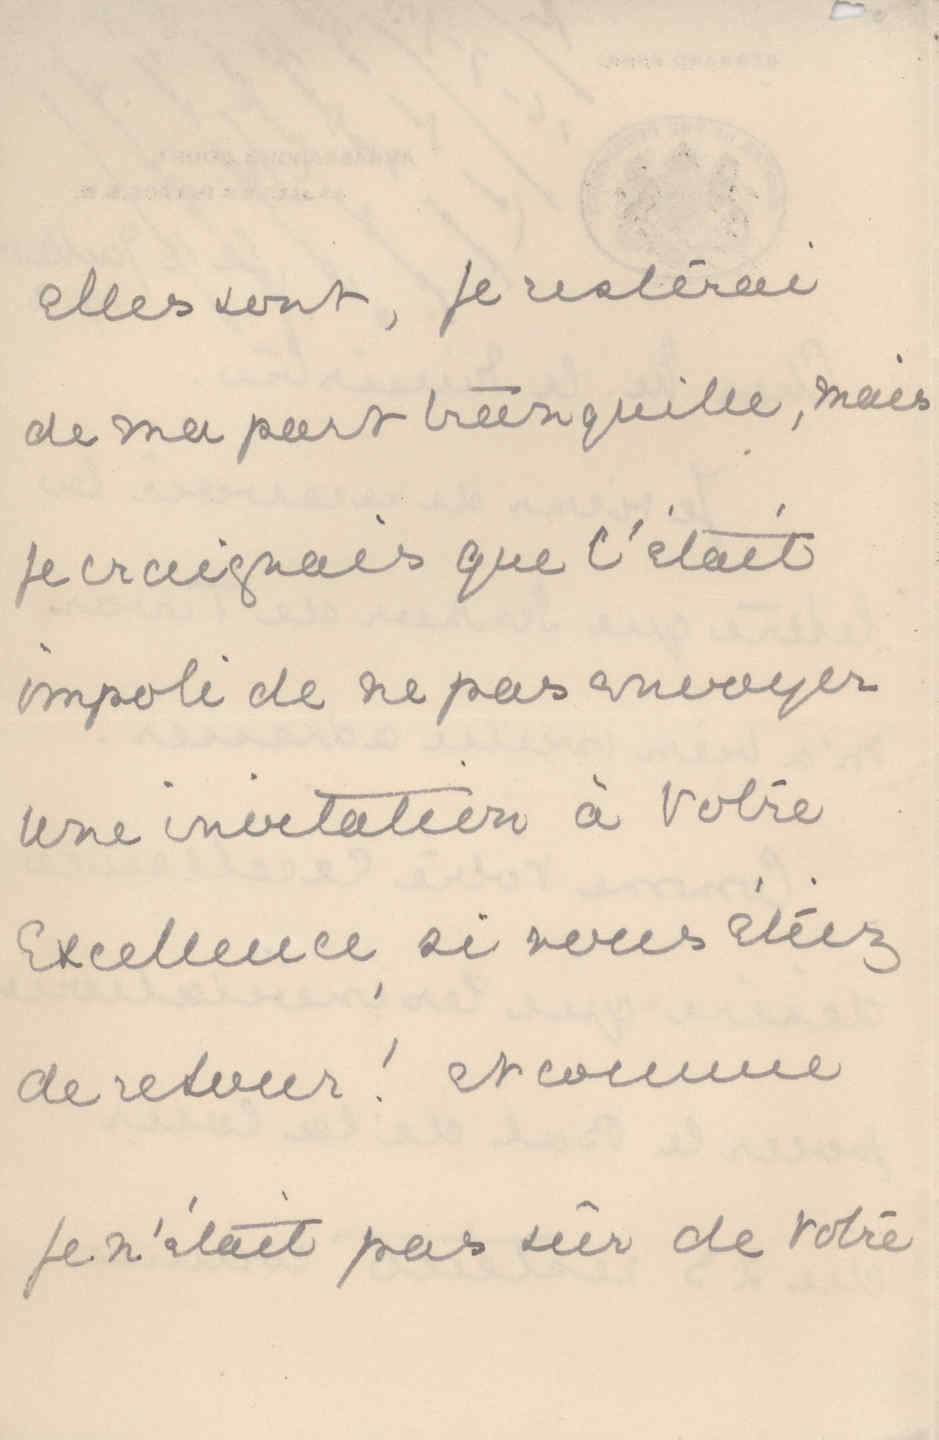 elles sont, je resterai
de ma part tranquille, mais
je craignais que c'était
impoli de ne pas envoyer
une invitation à Votre
Excellence, si vous étiez
de retour! et comme
je n'était pas sûr de Votre